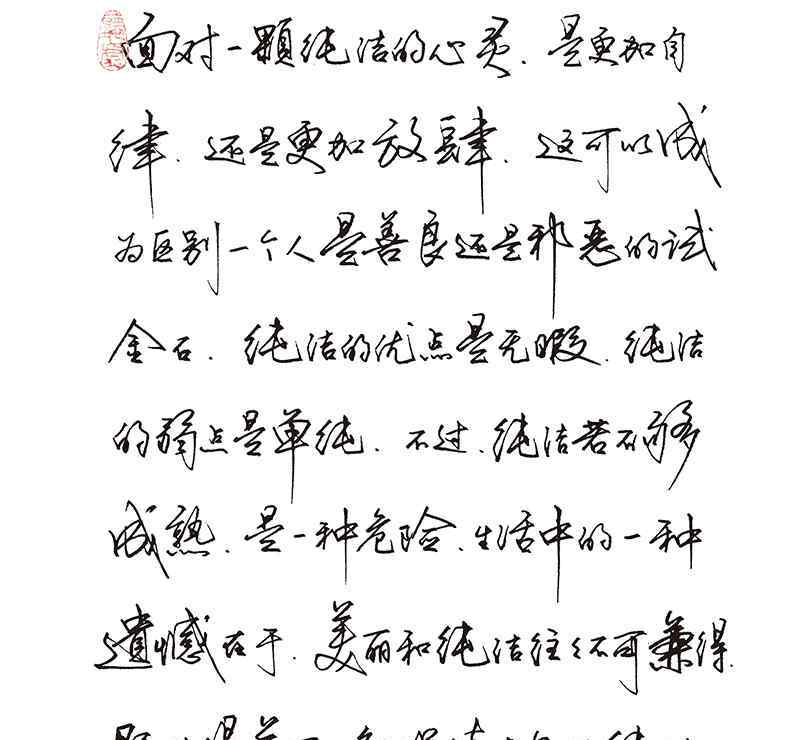 面对一颗纯洁的心灵，是更加自
律，还是更加放肆，这可以成
为区别一个人是善良还是邪恶的试
金石。纯洁的优点是无暇，纯洁
的弱点是单纯，不过，纯洁若不够
成熟，是一种危险，生活中的一种
遗憾在于，美丽和纯洁往往不可兼得，